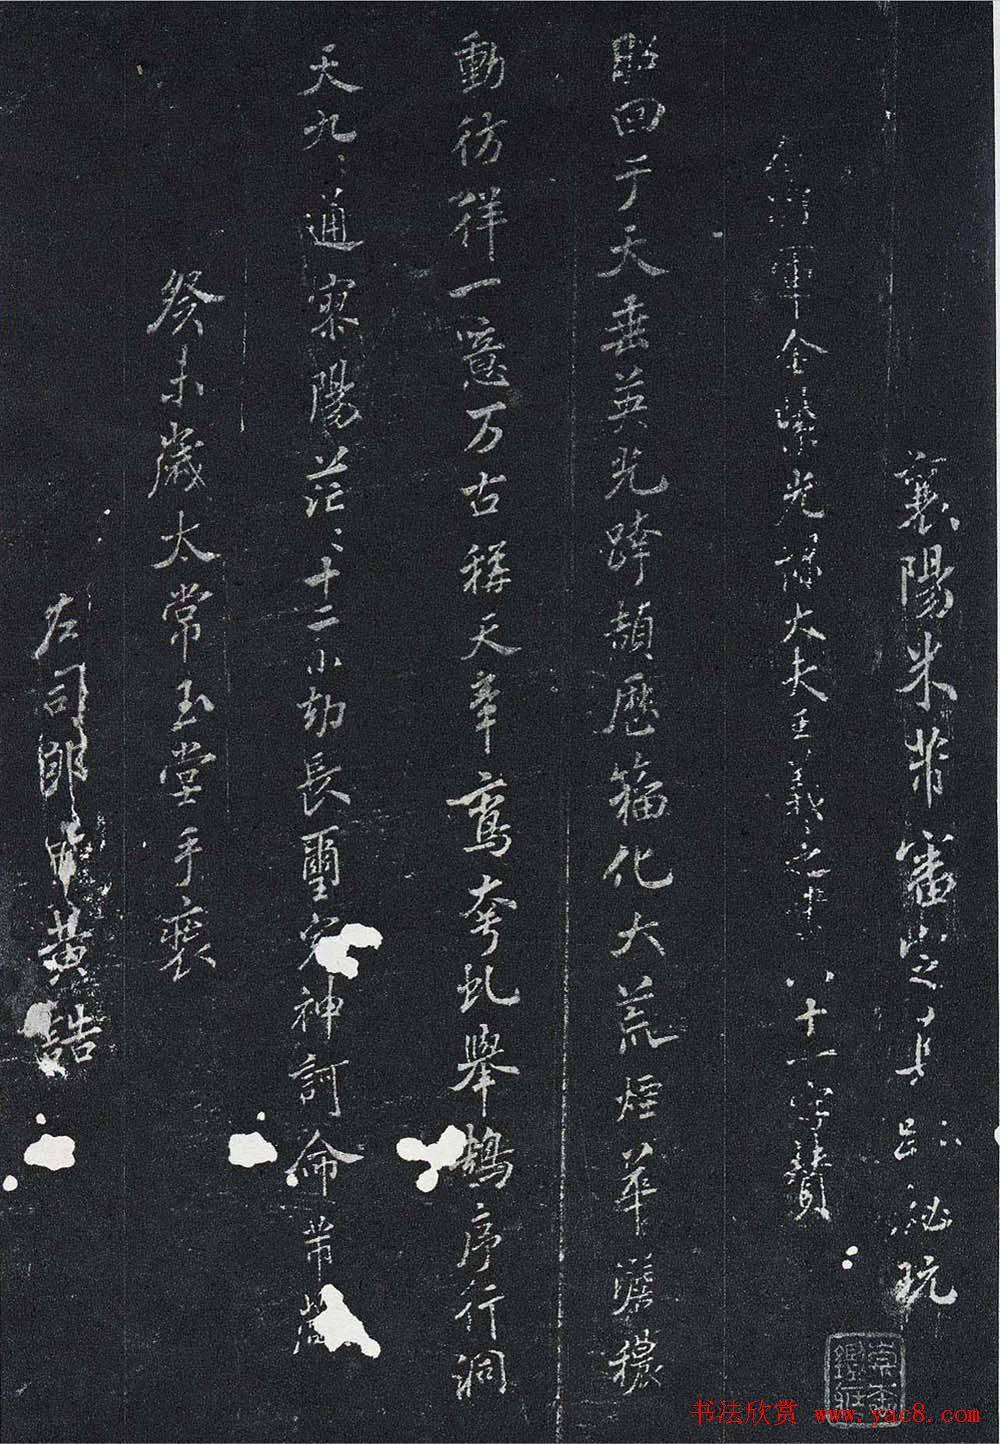 襄陽米芾審定真跡秘玩
右將軍金紫光祿大夫王羲之書 八十一字贊
昭回于天垂英光跨頡歷籀化大荒煙華澹穠
動彷徉一噫万古稱天章鸞夸虬舉鵠序行洞
天九〻通寥陽茫〻十二小劫長璽完神訶命芾藏
癸未歲太常玉堂手裝
左司郎中黃誥
书法欣赏 www.yac8.com